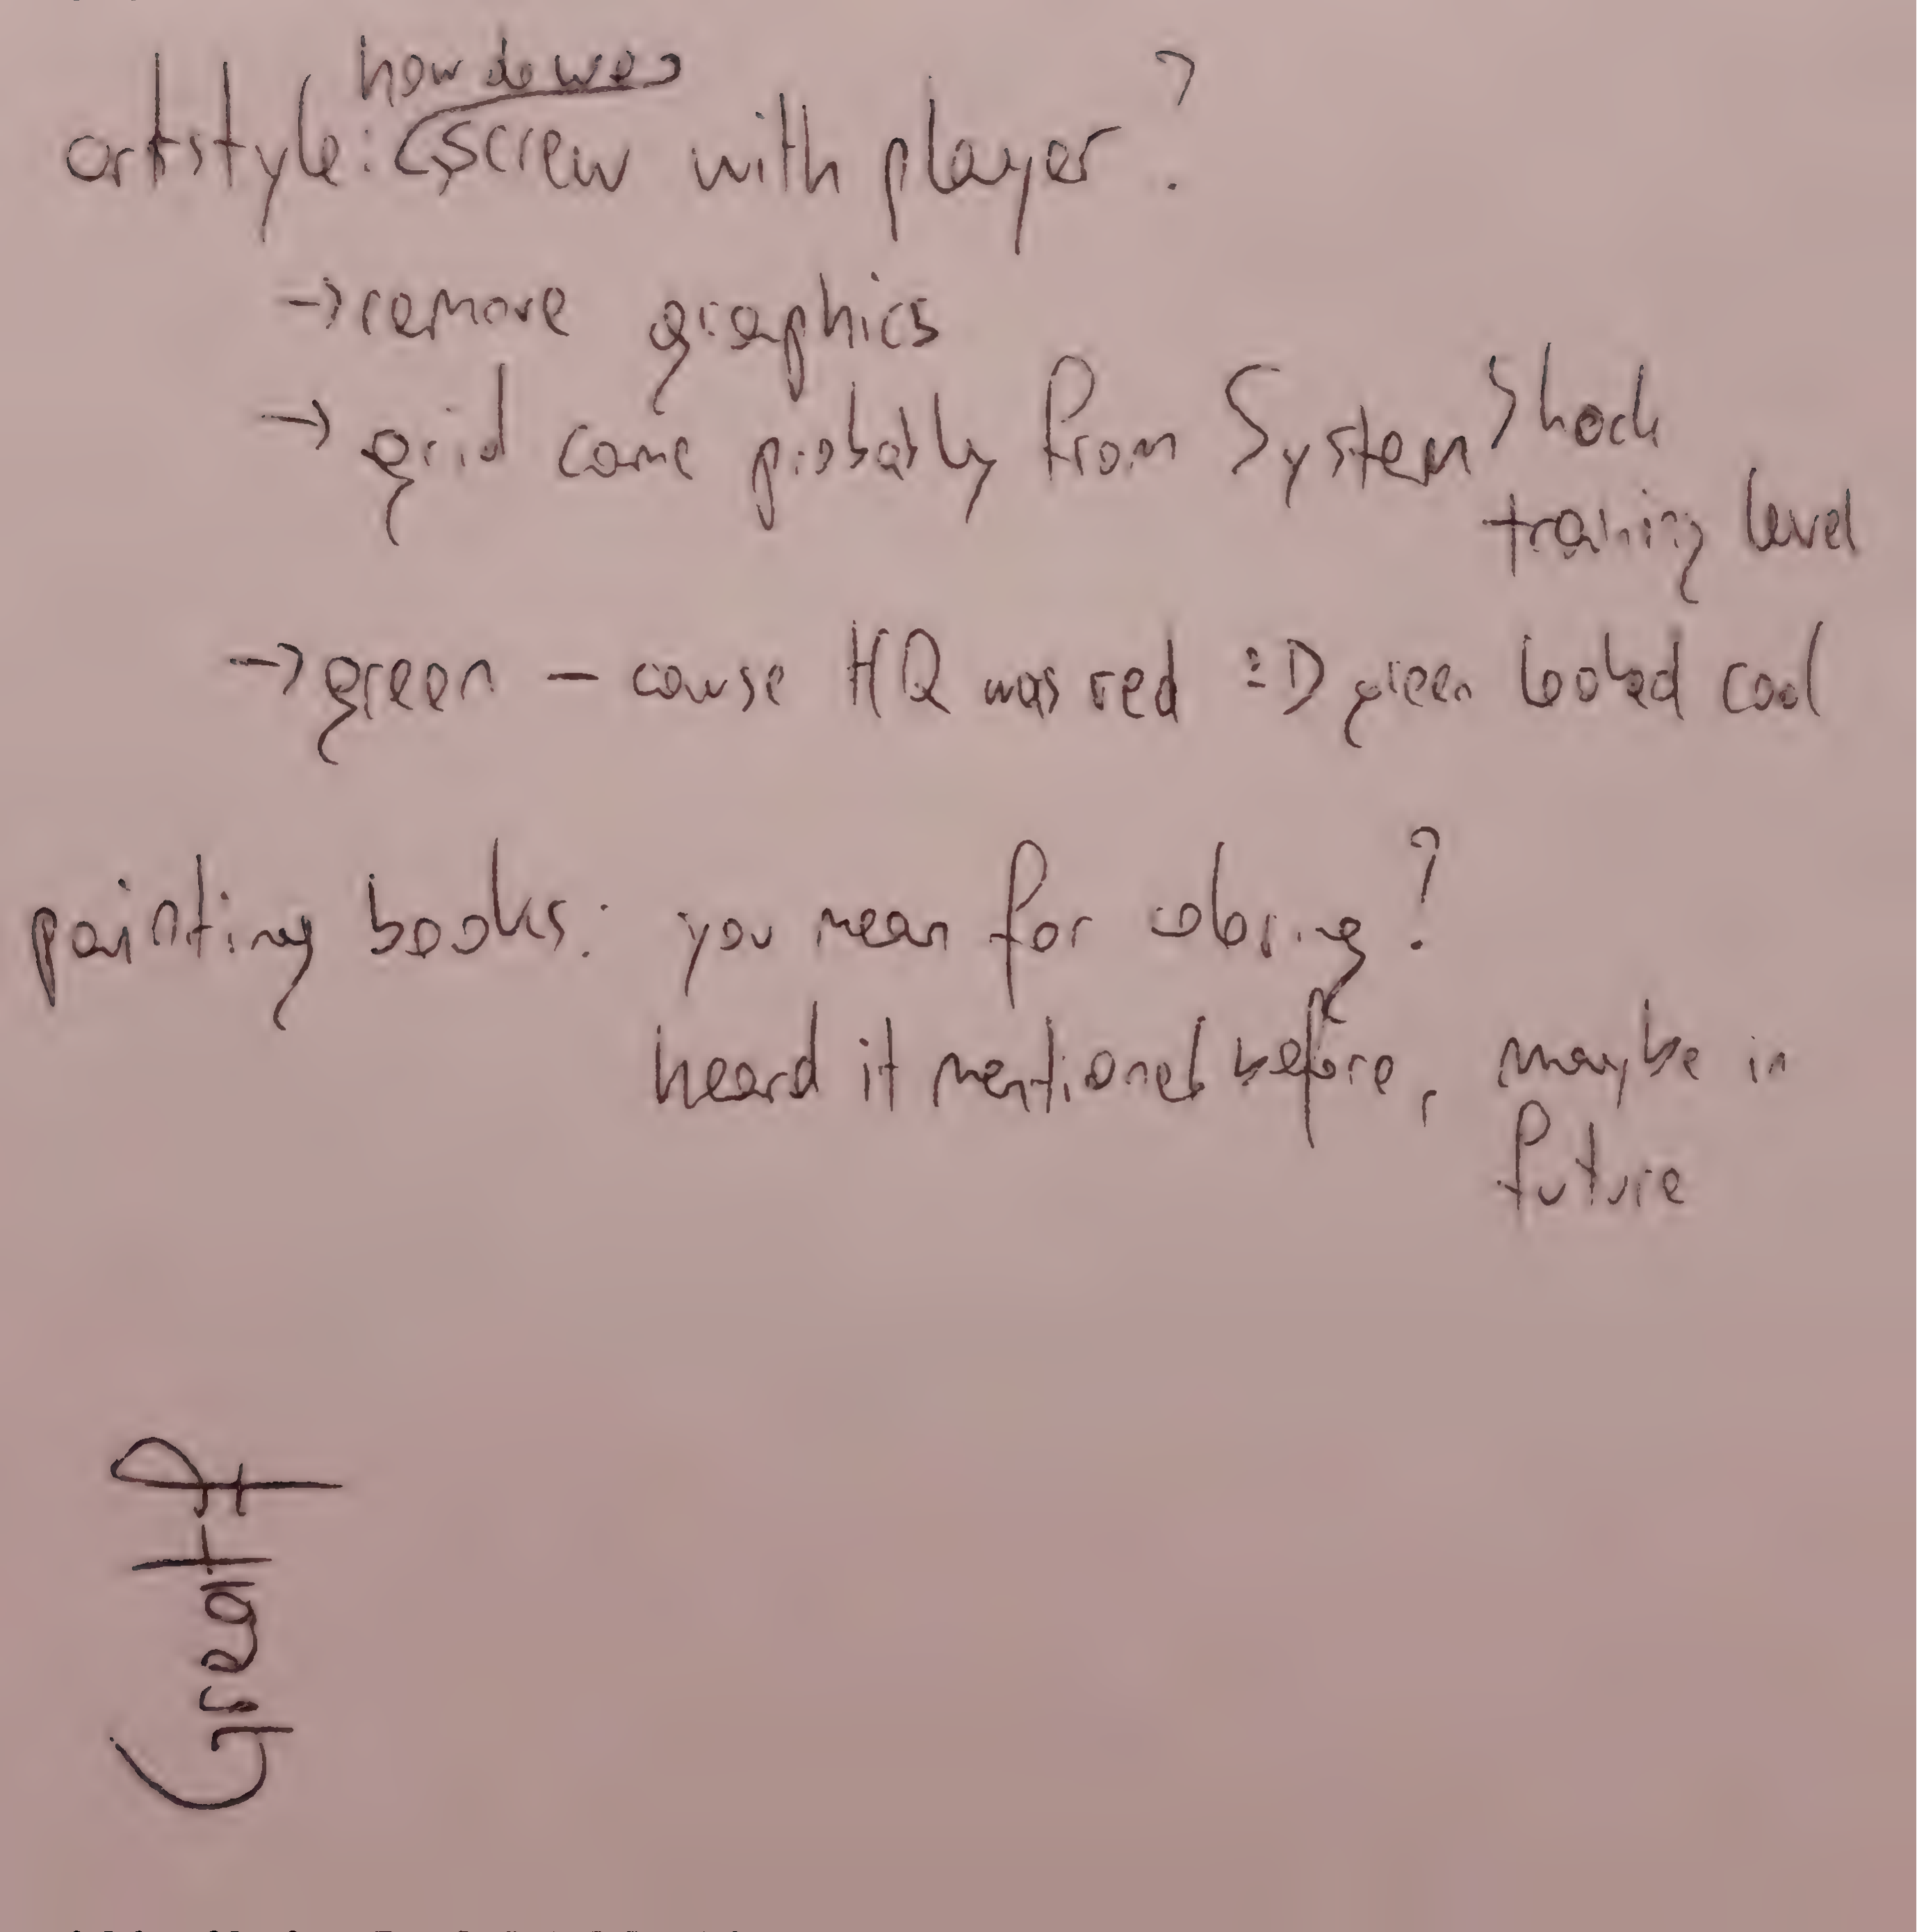 how do we
artstyle: screw with player?
→ remove graphics
→ grid came probably from System Shock
training level
→ green – cause HQ was red :D green looked cool
painting books: you mean for coloring?
heard it mentioned before, maybe in
future
Great